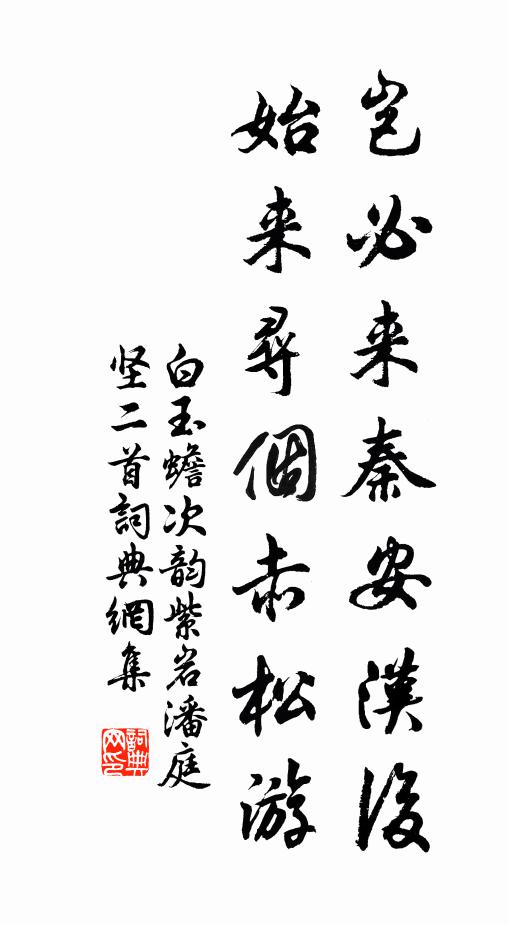 岂必来秦安漢後
始来尋個赤松游
白玉蟾次韵紫岩潘庭
坚二首詞典網集
詞典网印